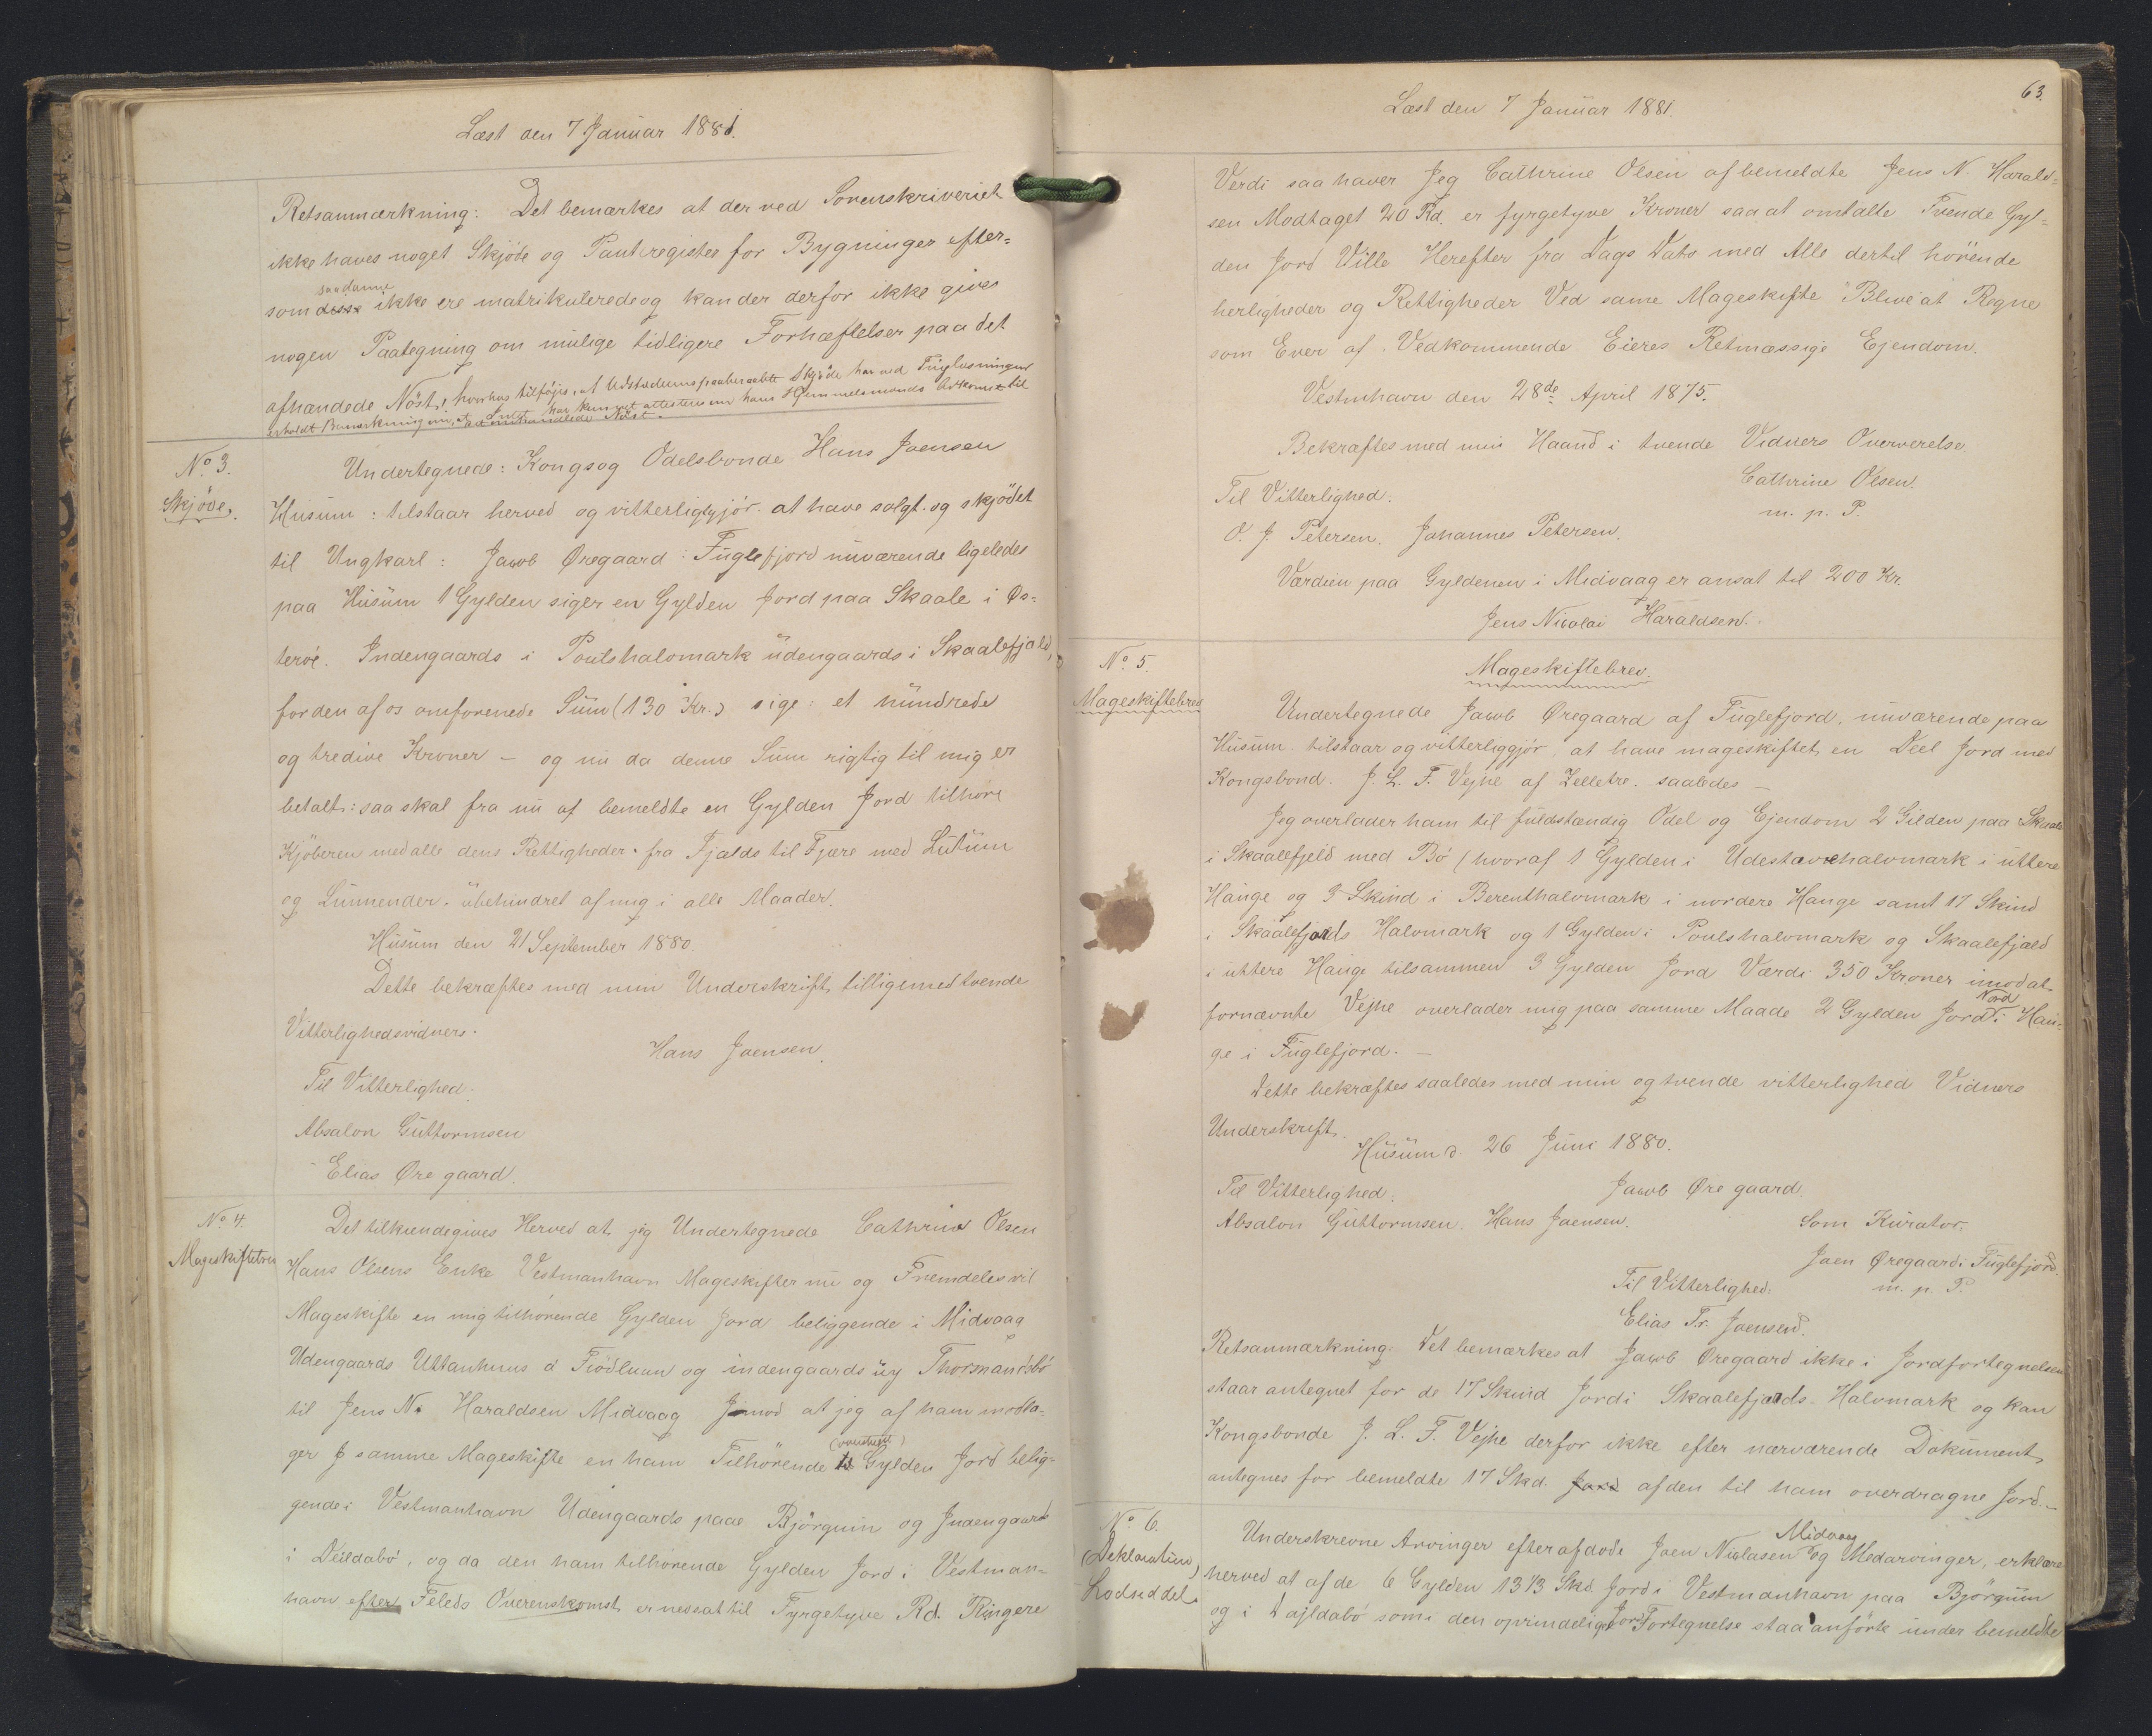 Læst den 7 Januar 1881.
Retsanmærkning: Det bemærkes at der ved Sorenskriveriet
ikke haves noget Skjöde og Pantregister for Bygninger efter=
som disse saadanne ikke ere matrikulerede og kan der derfor ikke gives
nogen Paategning om mulige tidligere Forhæftelser paa det
afhændede Nöst, hvorhos tilföjes, at Udstederens paaberaabte Skjöde har ved Tinglæsningen
erholdt Bemærkning om, at Intet har kunnet attesteres om hans Hjemmelsmands Adkomst til
det omhandlede Nöst.
No. 3.
Skjöde.
Undertegnede: Kongsog Odelsbonde Hans Joensen
Husum: tilstaar herved og vitterliggjör at have solgt og skjödet
til Ungkarl: Jacob Øregaard: Fuglefjord nuværende ligeledes
paa Husum 1 Gylden siger en Gylden Jord paa Skaale i Øs=
teröe. Indengaards i Poulshalvmark udengaards i Skaalefjæld,
for den af os omforenede Sum (130 Kr.) sige: et hundrede
og tredive Kroner – og nu da denne Sum rigtig til mig er
betalt: saa skal fra nu af bemeldte en Gylden Jord tilhöre
Kjöberen med alle dens Rettigheder fra Fjælds til Fjære med Lutum
og Lunnender. ubehindret af mig i alle Maader.
Husum den 21 September 1880.
Dette bekræftes med min Underskrift tilligemed tvende
Vitterlighedsvidners.
Hans Joensen.
Til Vitterlighed.
Absalon Guttormsen
Elias Øregaard.
No. 4.
Mageskiftebrev
Det tilkundegives Herved at jeg Undertegnede Cathrine Olsen
Hans Olsens Enke Vestmanhavn Mageskifter nu og Fremdeles vil
Mageskifte en mig tilhörende Gylden Jord beliggende i Midvaag
Udengaards Uttanhuus á Fiödluun og indengaards uy Thormandsbö
til Jens N. Haraldsen Midvaag Jmod at jeg af ham modta=
ger J samme Mageskifte en ham Tilhörende Gylden Jord belig=
gende i Vestmanhavn Udengaards paae Björguin og Indengaards
i Deildabö, og da den ham tilhörende Gylden Jord i Vestman=
havn efter Feleds Overenskomst er nedsat til Fyrgetyve Rd. Ringere
63.
Læst den 7 Januar 1881.
Verdi saa haver Jeg Cathrine Olsen af bemeldte Jens N. Harald=
sen Modtaget 20 Rd. er fyrgetyve Kroner saa at omtalte Tvende Gyl=
den Jord Ville Herefter fra Dags Dato med Alle dertil hörende
herligheder og Rettigheder Ved same Mageskifte Blive at Regne
som Ever af Vedkommende Eieres Retmæssige Ejendom.
Vestmhavn den 28de April 1875.
Bekræftes med min Haand i tvende Vidners Overværelse
Cathrine Olsen.
m. p. P.
Til Vitterlighed.
O. J. Petersen. Johannes Petersen.
Værdien paa Gyldenen i Midvaag er ansat til 200 Kr
Jens Nicolai Haraldsen.
No. 5.
Mageskiftebrev
Mageskiftebrev.
Undertegnede Jacob Øregaard af Fuglefjord, nuværende paa
Husum tilstaar og vitterliggjör at have mageskiftet en Deel Jord med
Kongsbond. J. L. F. Vejhe af Zelletre. saaledes –
Jeg overlader ham til fuldstændig Odel og Ejendom 2 Gilden paa Skaale
i Skaalefjeld med Bö (hvoraf 1 Gylden i Udestavrehalvmark i uttere
Hauge og 3 Skind i Berenthalvmark i nordere Hauge samt 17 Skind
i Skaalefjords Halvmark og 1 Gylden i Poulshalvmark og Skaalefjæld
i uttere Hauge tilsammen 3 Gylden Jord Værdi 350 Kroner imod at
fornævnte Vejhe overlader mig paa samme Maade 2 Gylden Jord i Nord Hau=
ge i Fuglefjord. –
Dette bekræftes saaledes med min og tvende vitterlighed Vidners
Underskrift.
Husum d. 26 Juni 1880.
Jacob Øregaard.
Til Vitterlighed.
Absalon Guttormsen. Hans Joensen.
Som Kurator.
Joen Øregaard i Fuglefjord.
m. p. P.
Til Vitterlighed.
Elias Fr. Joensen.
Retsanmærkning: Det bemærkes at Jacob Øregaard ikke i Jordfortegnelsen
staar antegnet for de 17 Skind Jord i Skaalefjords Halvmark og kan
Kongsbonde J. L. F. Vejhe derfor ikke efter nærværende Dokument
antegnes for bemeldte 17 Skd. Jord af den til ham overdragne Jord. –
No. 6.
(Deklaration)
Lodseddel.
Underskrevne Arvinger efter afdöde Joen Niclasen Midvaag og Medarvinger, erklære
herved at af de 6 Gylden 13 1/3 Skd. Jord i Vestmanhavn paa Björguim
og i Dajldabö som i den oprindelige Jord Fortegnelse staa anförte under bemeldte